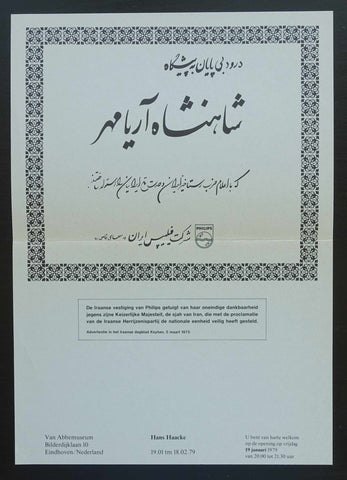 درود بی پایان به پیشگاه
شاهنشاه آریامهر
که با اعلام حزب رستاخیز ایران وحدت
شرکت فیلیپس ایران
PHILIPS
De Iraanse vestiging van Philips getuigt van haar oneindige dankbaarheid
jegens zijne Keizerlijke Majesteit, de sjah van Iran, die met de proclamatie
van de Iraanse Herrijzenispartij de nationale eenheid veilig heeft gesteld.
Advertentie in het Iraanse dagblad Keyhan, 5 maart 1975
Van Abbemuseum
Bilderdijklaan 10
Eindhoven/Nederland
Hans Haacke
19.01 tm 18.02.79
U bent van harte welkom
op de opening op vrijdag
19 januari 1979
van 20.00 tot 21.30 uur